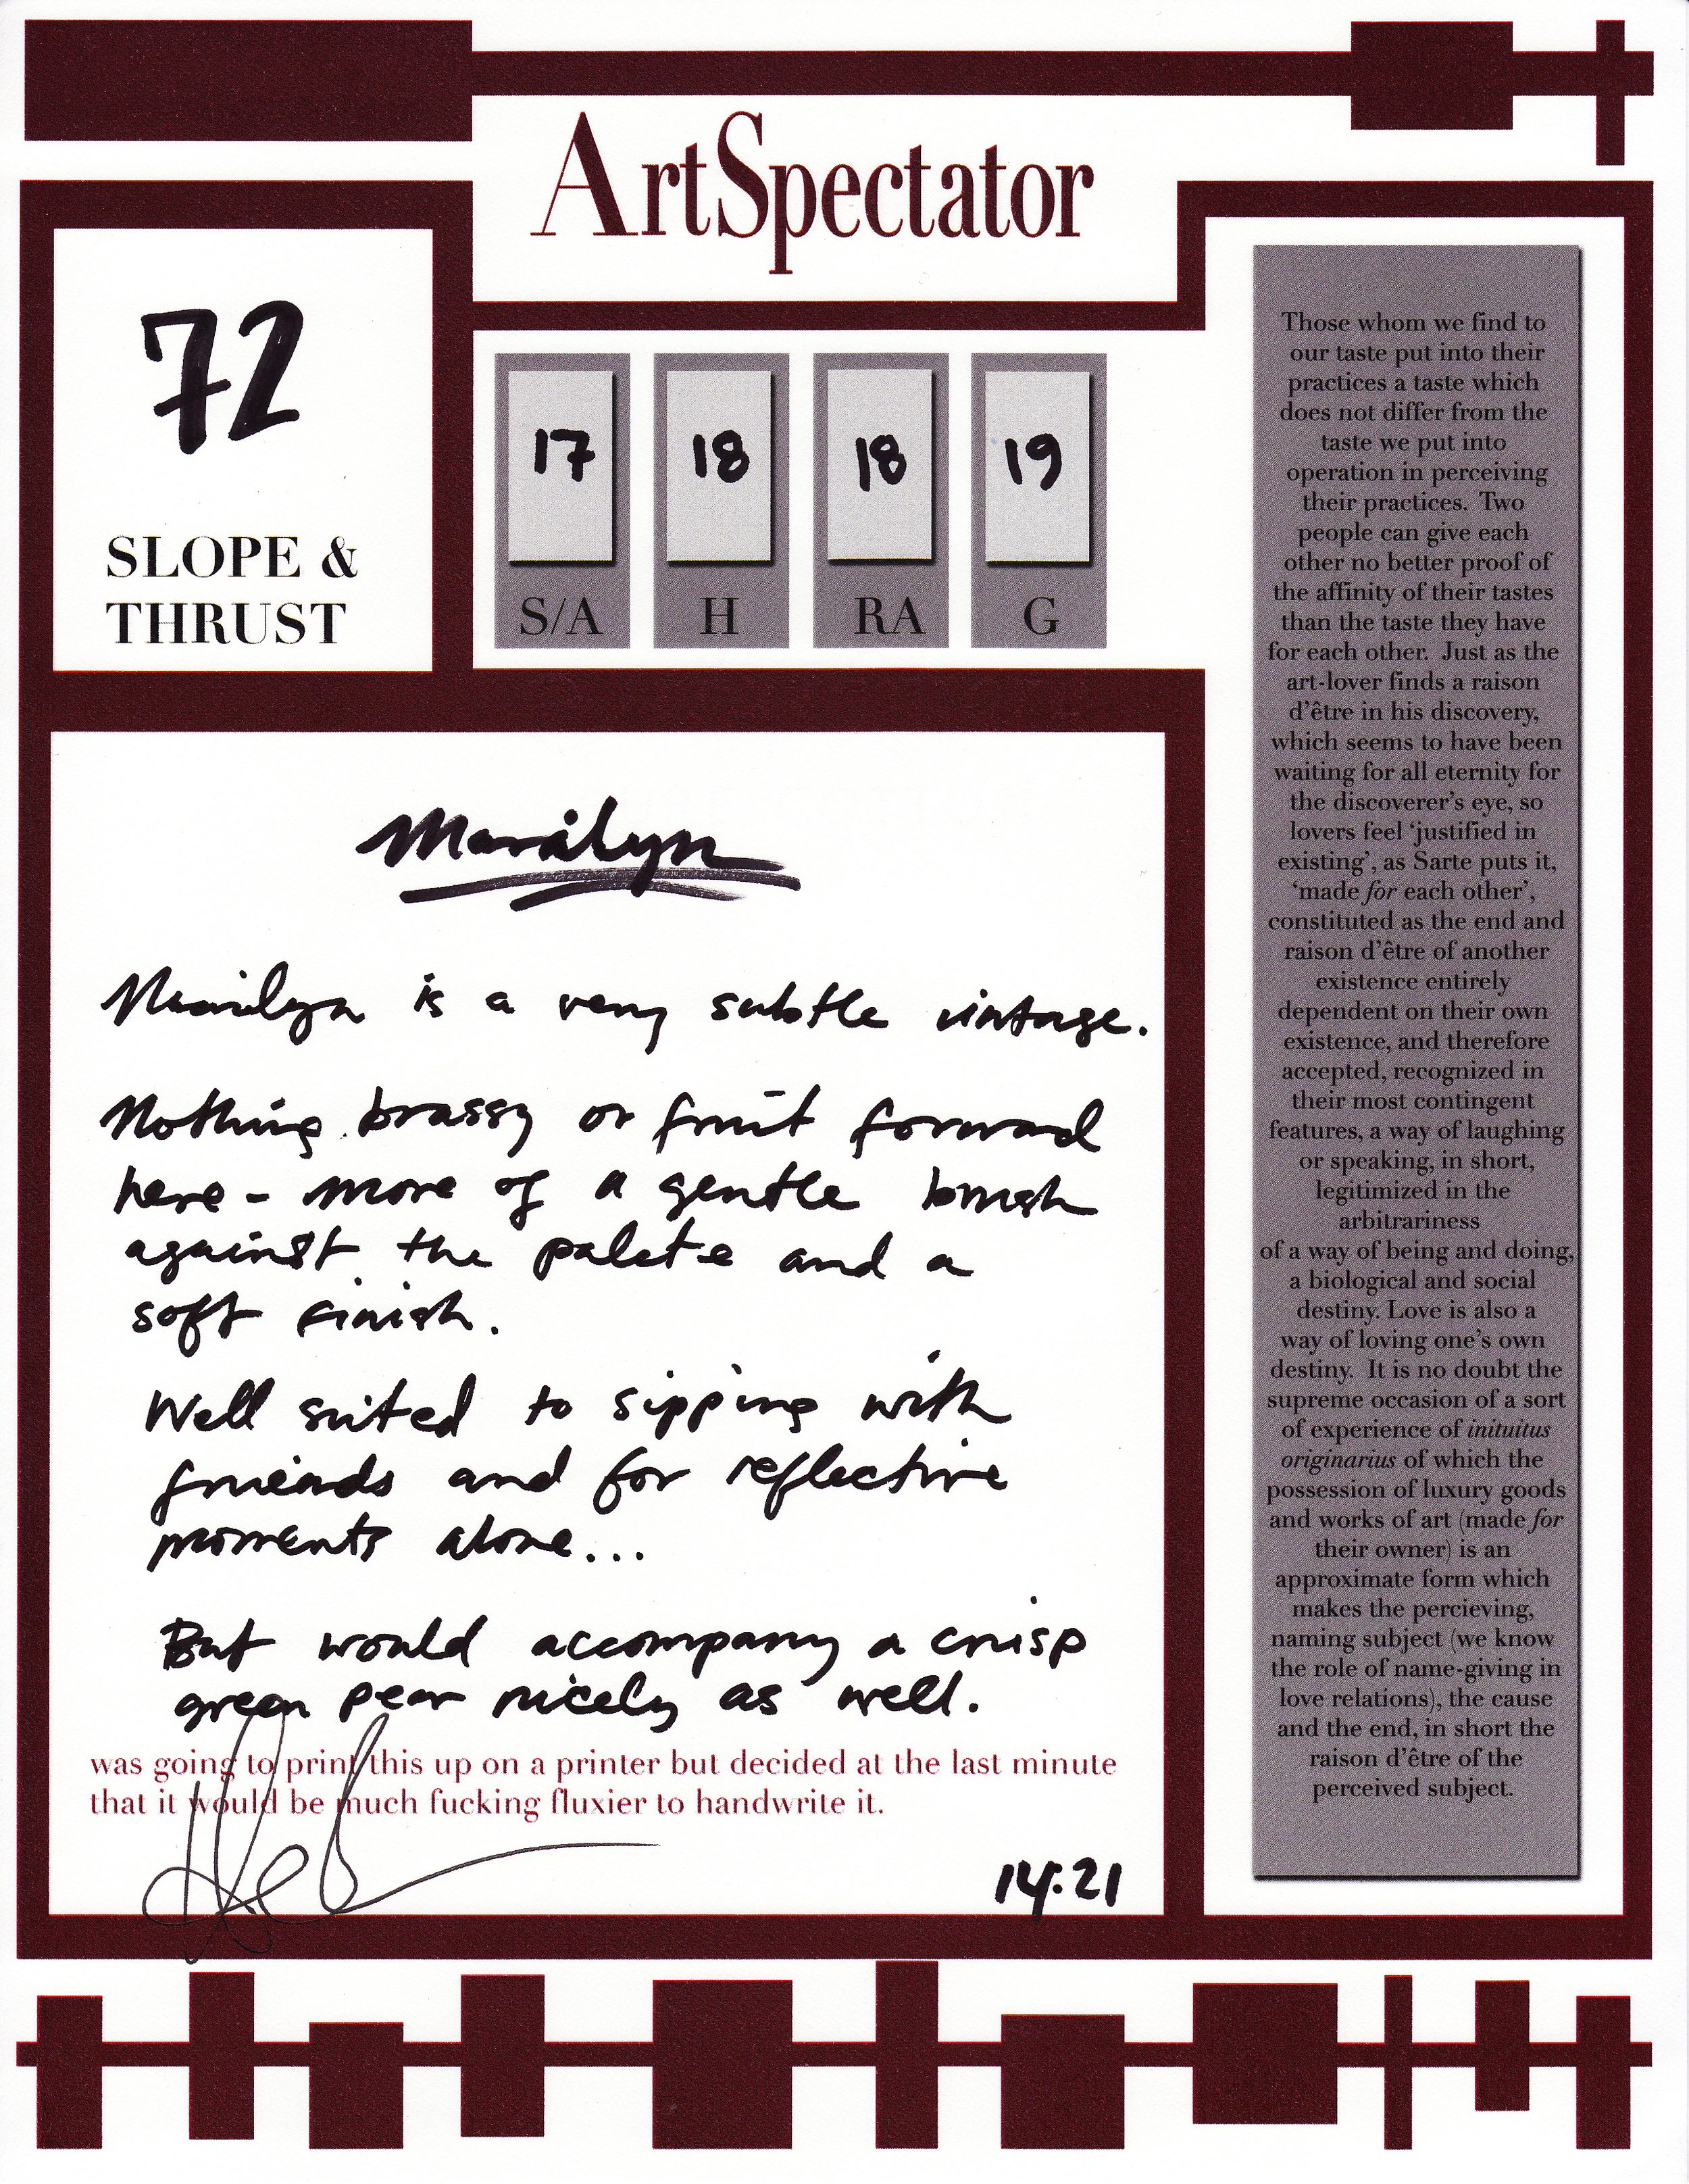 ArtSpectator
72
SLOPE &
THRUST
17
S/A
18
H
18
RA
19
G
Marilyn
Marilyn is a very subtle vintage.
Nothing brassy or fruit forward
here - more of a gentle brush
against the palete and a
soft finish.
Well suited to sipping with
friends and for reflective
moments alone...
But would accompany a crisp
green pear nicely as well.
was going to print this up on a printer but decided at the last minute
that it would be much fucking fluxier to handwrite it.
14:21
Those whom we find to
our taste put into their
practices a taste which
does not differ from the
taste we put into
operation in perceiving
their practices. Two
people can give each
other no better proof of
the affinity of their tastes
than the taste they have
for each other. Just as the
art-lover finds a raison
d'être in his discovery,
which seems to have been
waiting for all eternity for
the discoverer's eye, so
lovers feel 'justified in
existing', as Sarte puts it,
'made for each other',
constituted as the end and
raison d'être of another
existence entirely
dependent on their own
existence, and therefore
accepted, recognized in
their most contingent
features, a way of laughing
or speaking, in short,
legitimized in the
arbitrariness
of a way of being and doing,
a biological and social
destiny. Love is also a
way of loving one's own
destiny. It is no doubt the
supreme occasion of a sort
of experience of inituitus
originarius of which the
possession of luxury goods
and works of art (made for
their owner) is an
approximate form which
makes the percieving,
naming subject (we know
the role of name-giving in
love relations), the cause
and the end, in short the
raison d'être of the
perceived subject.